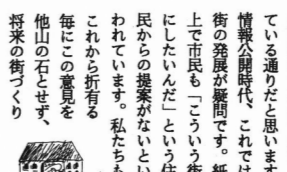 ている通りだと思います
情報公開時代、これでは
街の発展が疑問です。紙
上で市民も「こういう街
にしたいんだ」という住
民からの提案がないとい
われています。私たちも
これから折有る
毎にこの意見を
他山の石とせず、
将来の街づくり